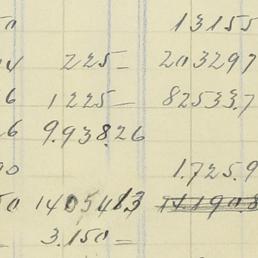 0 13155
4 225- 203297
6 1225- 82533.7
26 9.938.26
90 1.725.9
50 1405483
- 3.150-